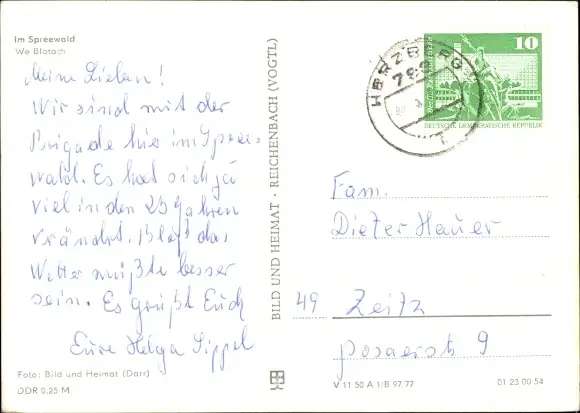 Im Spreewald
We Blotach
Meine Lieben!
Wir sind mit der
Brigade hie im Spree-
wald. Es hat sich ja
viel in den 25 Jahren
verändrt. Bloß das
Wetter müßte besser
sein. Es grüßt Euch
Eure Helga Sippel
Foto: Bild und Heimat (Darr)
DDR 0,25 M
BILD UND HEIMAT · REICHENBACH (VOGTL)
HERZBERG
10
DEUTSCHE DEMOKRATISCHE REPUBLIK
Fam.
Dieter Hauer
49 Zeitz
Posaerstr 9
V 11 50 A 1/B 97.77
01 23 00 54